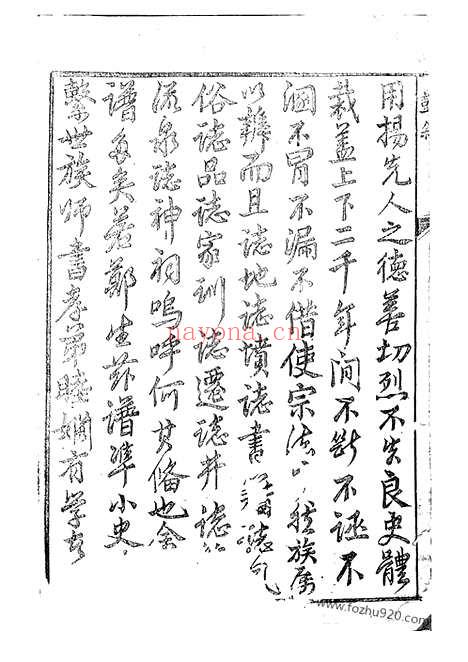 用揚先人之德善切烈不失良史體
裁蓋上下二千年间不斷不誣不
溷不冒不漏不僭使宗法族属
以辨而且誌地誌墳誌書誌
俗誌品誌家训誌遷誌井誌
流泉誌神祠嗚呼何其俻也余
譜多矣若鄭生茲譜準小史
繫世族师書孝弟睦婣有学
nayona.cn
www.fozhu920.com